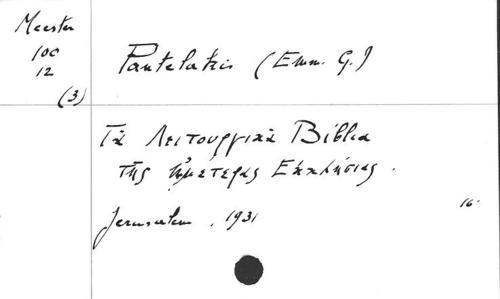 Meester
100
12
(3)
Pantelakis (Emm. G.)
Τὰ Λειτουργικὰ Βίβλια
τῆς ἡμετέρας Ἐκκλησίας.
Jerusalem, 1931
16°